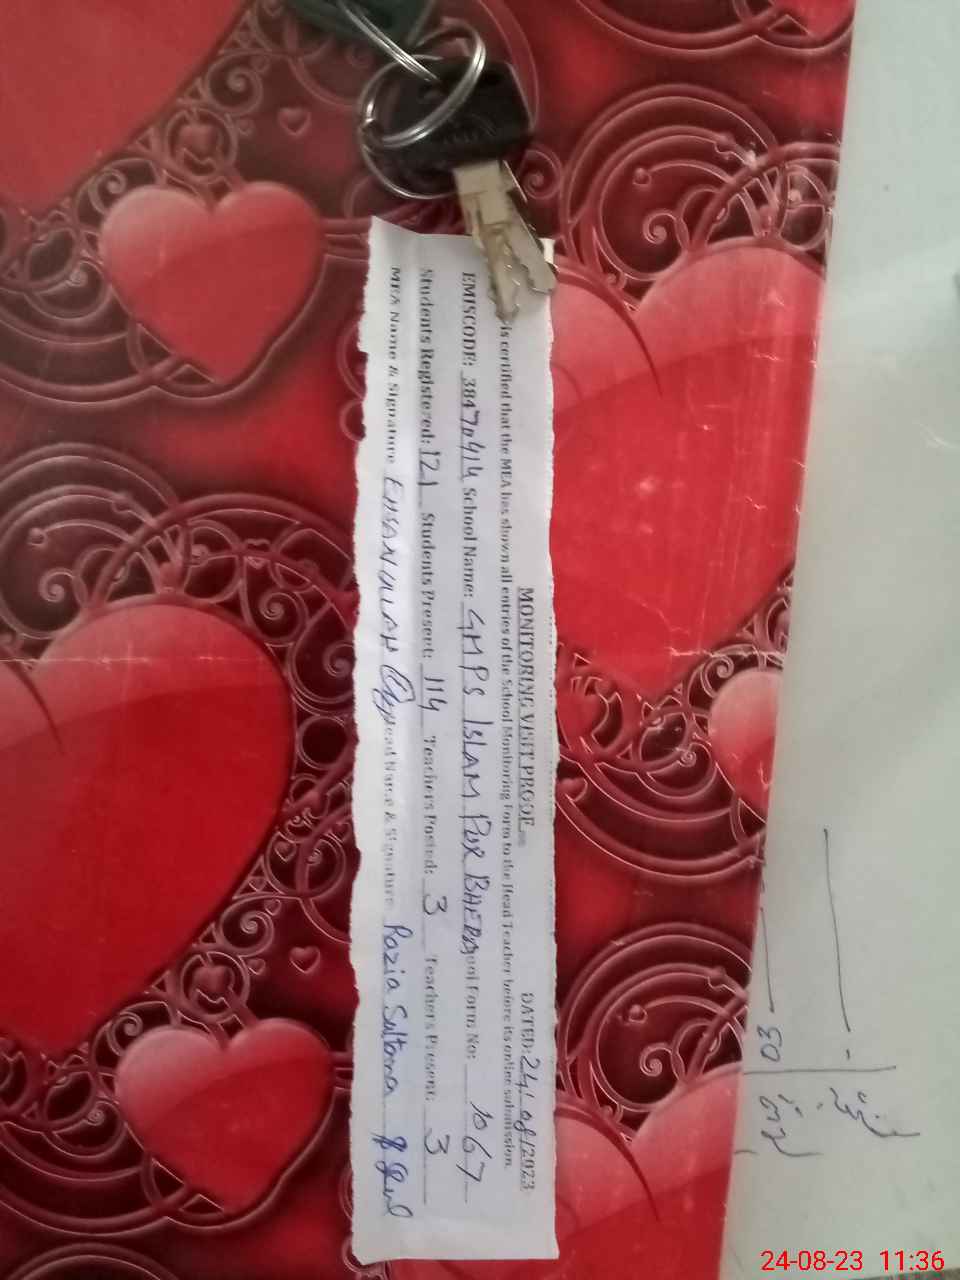 MONITORING VISIT PROOF
DATED: 24/08/2023
is certified that the MEA has shown all entries of the School Monitoring Form to the Head Teacher before its online submission.
EMISCODE: 38470414 School Name: GMPS ISLAM PUR School Form No: 1067
Students Registered: 121 Students Present: 114 Teachers Posted: 3 Teachers Present: 3
MEA Name & Signature EHSAN ULLAH Head Name & Signature Razia Sultana
03
24-08-23 11:36